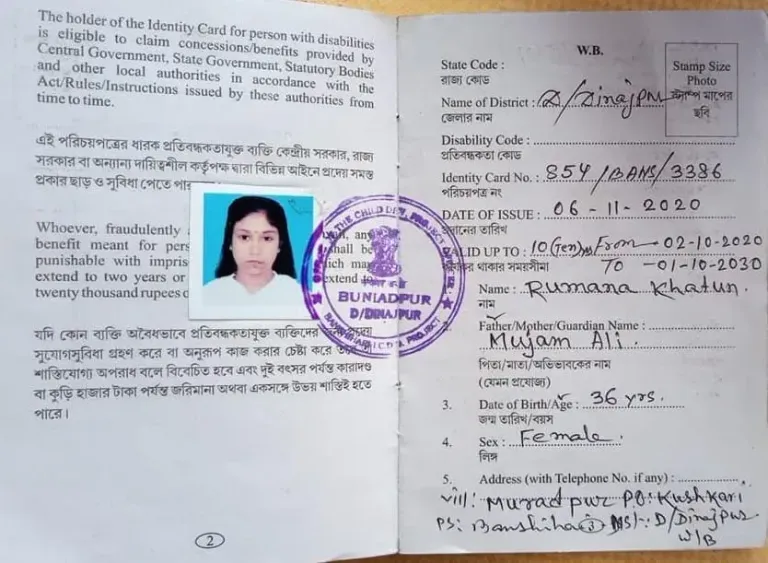 The holder of the Identity Card for person with disabilities
is eligible to claim concessions/benefits provided by
Central Government, State Government, Statutory Bodies
and other local authorities in accordance with the
Act/Rules/Instructions issued by these authorities from
time to time.
এই পরিচয়পত্রের ধারক প্রতিবন্ধকতাযুক্ত ব্যক্তি কেন্দ্রীয় সরকার, রাজ্য
সরকার বা অন্যান্য দায়িত্বশীল কর্তৃপক্ষ দ্বারা বিভিন্ন আইনে প্রদেয় সমস্ত
প্রকার ছাড় ও সুবিধা পেতে
Whoever, fraudulently
benefit meant for
punishable with
extend to two years or
twenty thousand rupees
any
shall be
extend to
যদি কোন ব্যক্তি অবৈধভাবে প্রতিবন্ধকতাযুক্ত ব্যক্তিদের
সুযোগসুবিধা গ্রহণ করে বা অনুরূপ কাজ করার চেষ্টা করে
শাস্তিযোগ্য অপরাধ বলে বিবেচিত হবে এবং দুই বৎসর পর্যন্ত কারাদণ্ড
বা কুড়ি হাজার টাকা পর্যন্ত জরিমানা অথবা একসঙ্গে উভয় শাস্তিই হতে
পারে।
2
THE CHILD DEV. PROJECT
BUNIADPUR
D/DINAJPUR
I.C.D.S. PROJECT
W.B.
Stamp Size
Photo
স্ট্যাম্প মাপের
ছবি
State Code :
রাজ্য কোড
Name of District : D/Dinajpur
জেলার নাম
Disability Code :
প্রতিবন্ধকতা কোড
Identity Card No. : 854/BANS/3386
পরিচয়পত্র নং
DATE OF ISSUE : 06-11-2020
প্রদানের তারিখ
VALID UP TO : 10 (Ten) From - 02-10-2020
থাকার সময়সীমা TO - 01-10-2030
Name : Rumana Khatun.
নাম
2. Father/Mother/Guardian Name :
Mujam Ali.
পিতা/মাতা/অভিভাবকের নাম
(যেমন প্রযোজ্য)
3. Date of Birth/Age : 36 yrs.
জন্ম তারিখ/বয়স
4. Sex : Female.
লিঙ্গ
5. Address (with Telephone No. if any) :
vill: Muradpur PO: Kushkari
PS: Banshihari Dist: D/Dinajpur
3
W/B